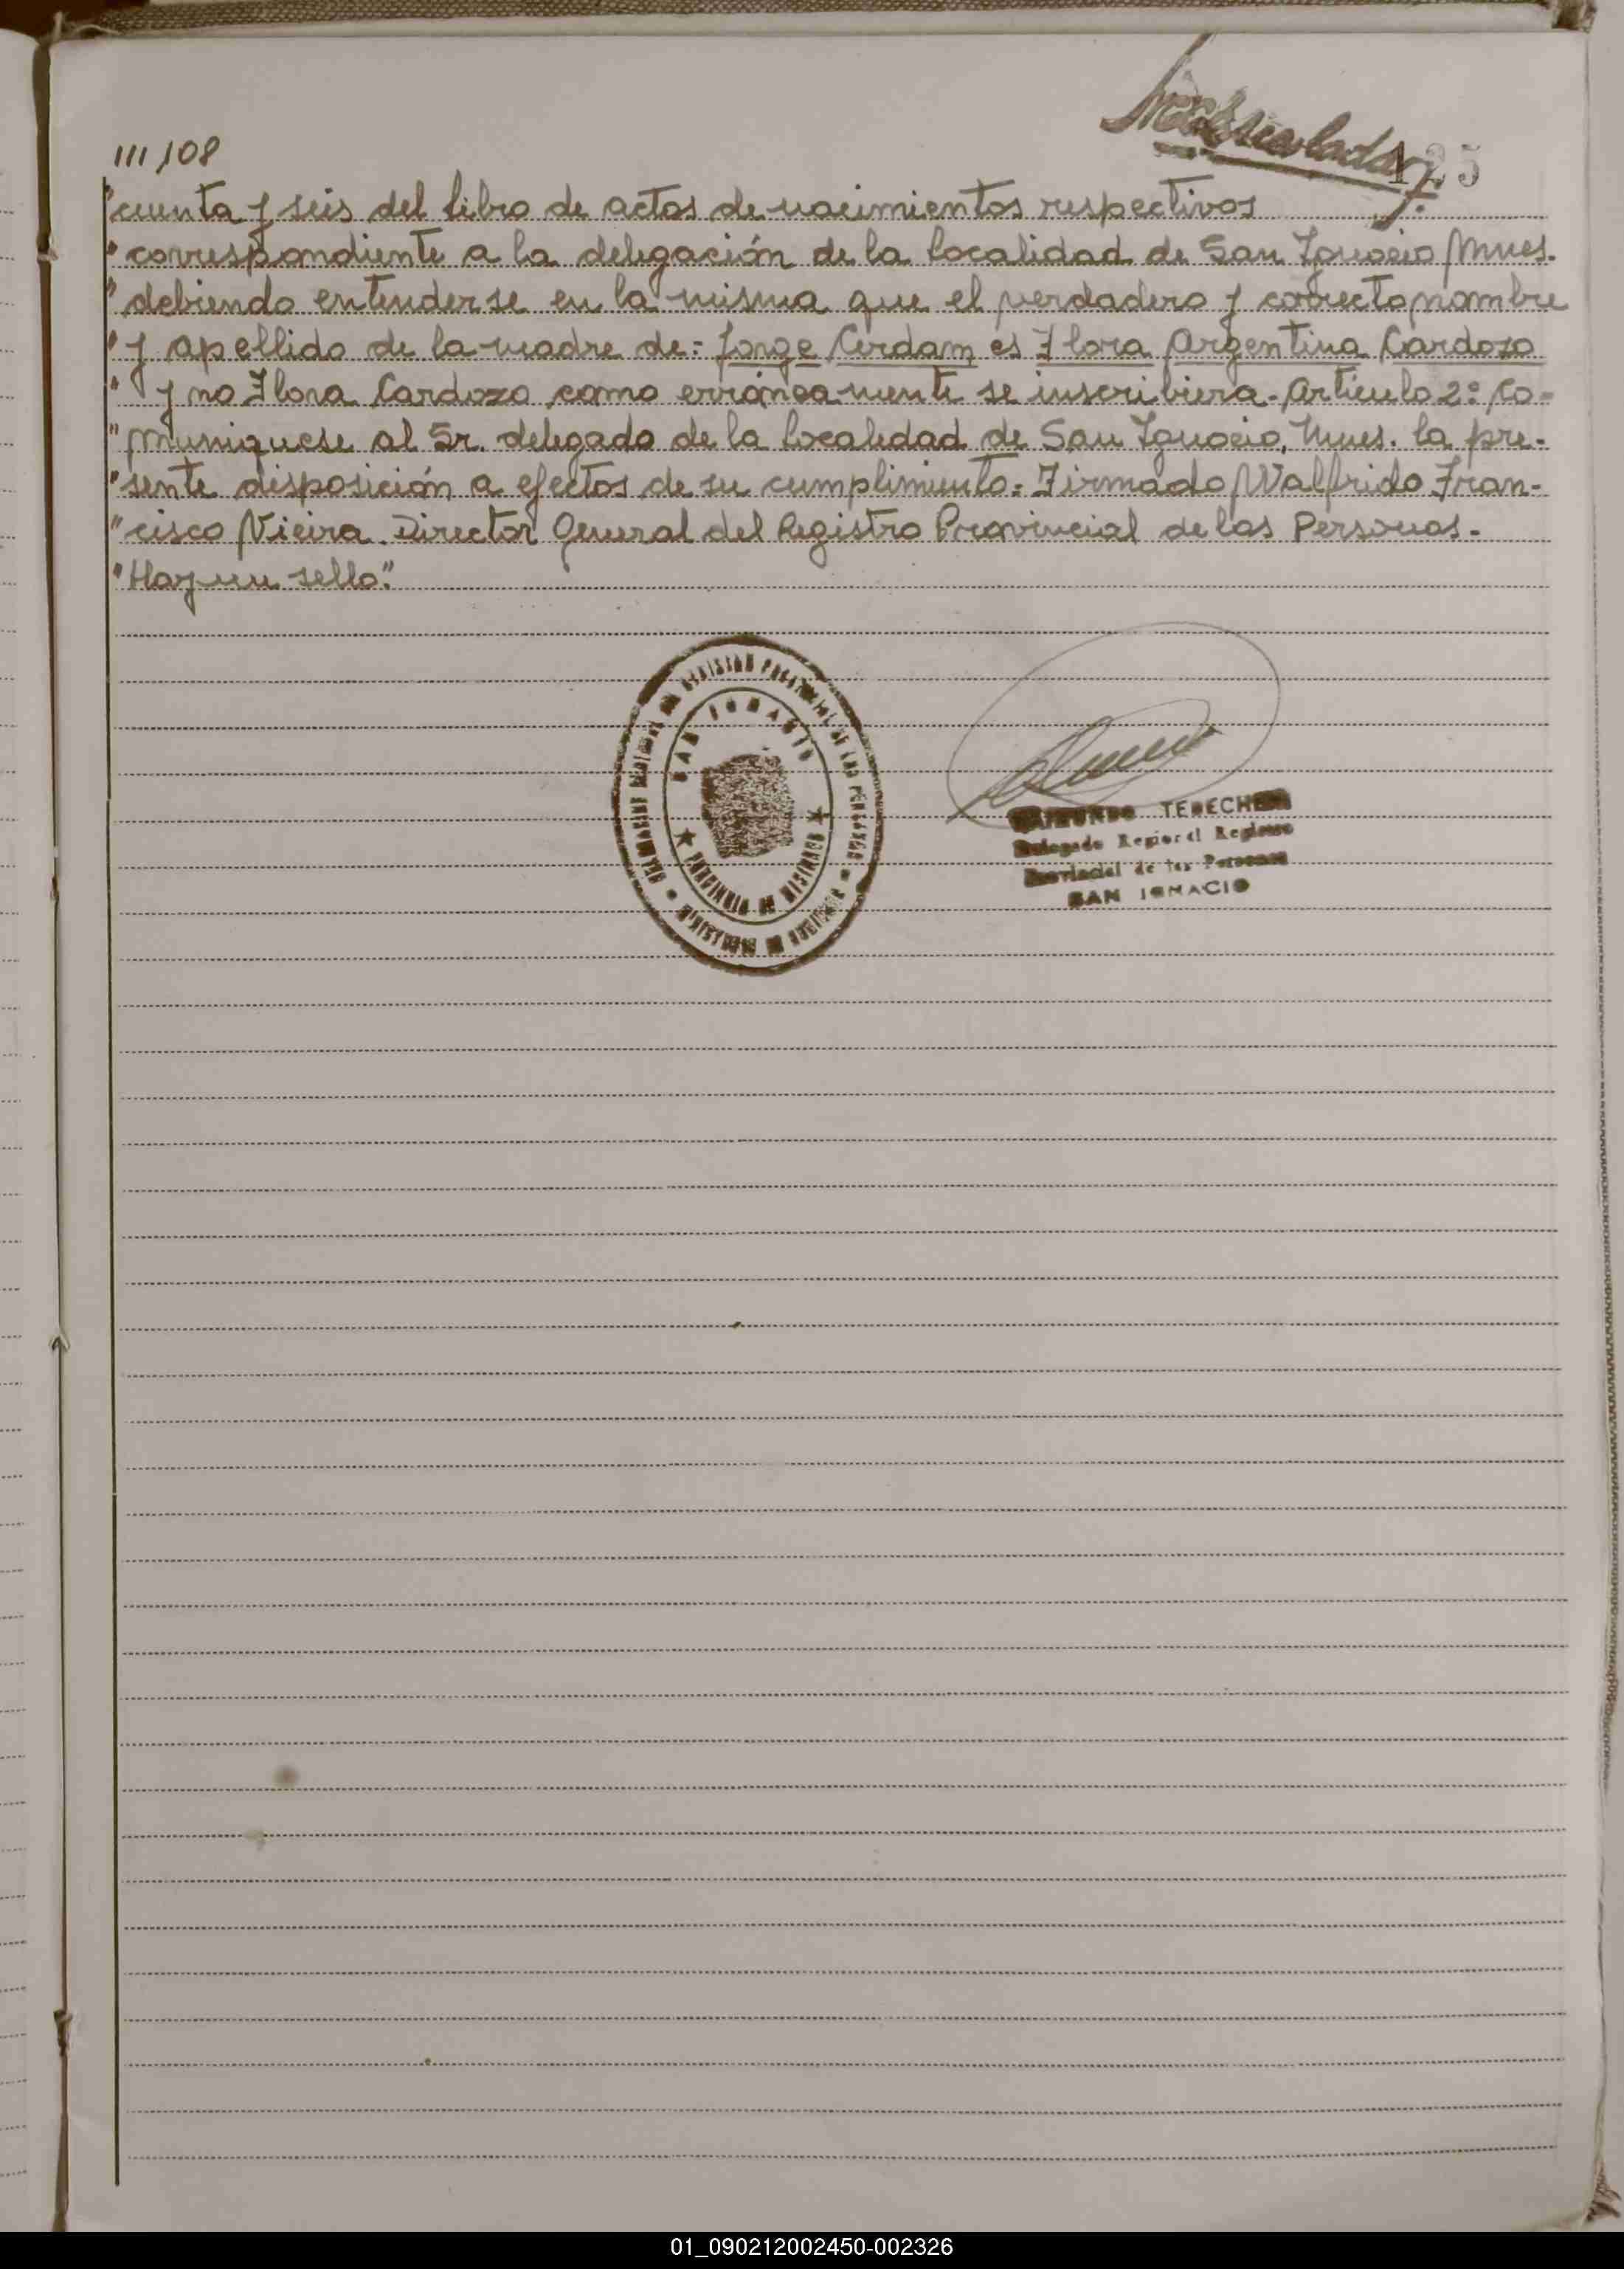 125
III 108
"cuenta y seis del libro de actas de nacimientos respectivos
"correspondiente a la delegación de la localidad de San Ignacio, Mnes.
"debiendo entenderse en la misma que el verdadero y correcto nombre
"y apellido de la madre de: Jorge Cerdam es Flora Argentina Cardozo
"y no Flora Cardozo como erróneamente se inscribiera. Artículo 2º: Co-
"muniquese al Sr. delegado de la localidad de San Ignacio, Mnes. la pre-
"sente disposición a efectos de su cumplimiento. Firmado Walfrido Fran-
"cisco Vieira. Director General del Registro Provincial de las Personas.
"Hay un sello."
SAN IGNACIO
PROVINCIA DE MISIONES
TEDECHE
Delegado Regional Registro
Provincial de las Personas
SAN IGNACIO
01_090212002450-002326